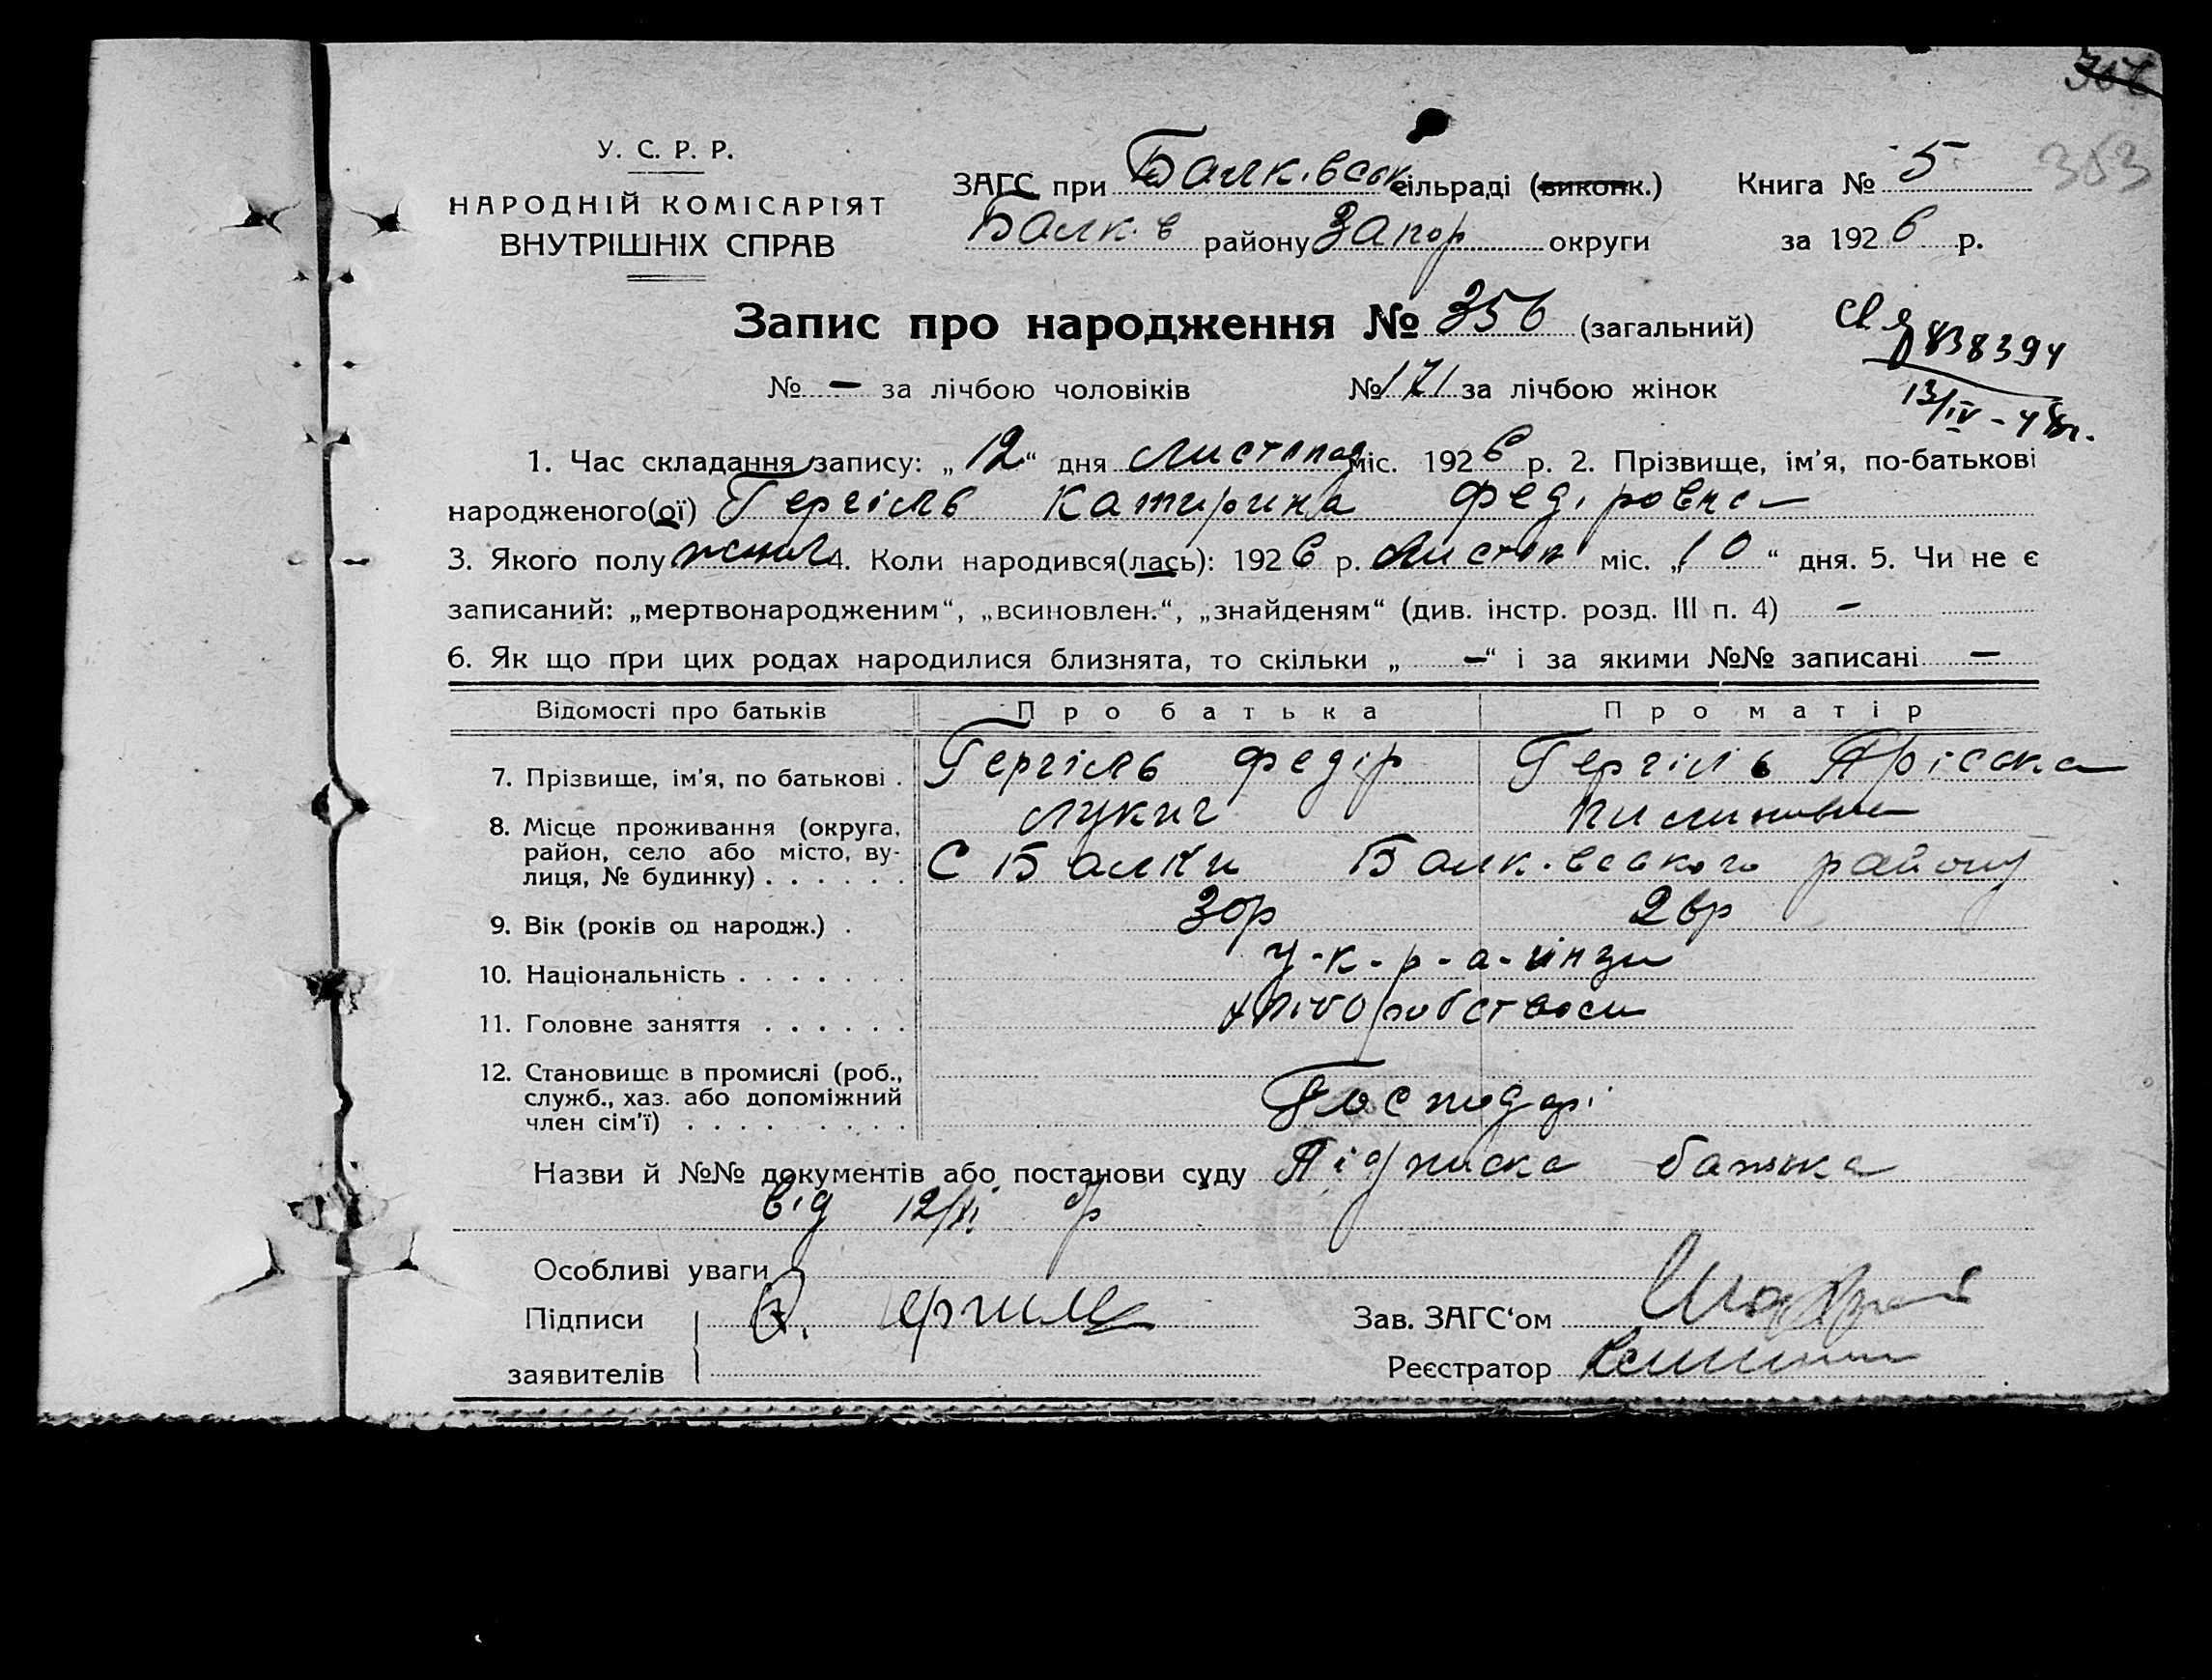 353
У. С. Р. Р.
НАРОДНІЙ КОМІСАРІЯТ
ВНУТРІШНІХ СПРАВ
ЗАГС при Балківськ сільраді (виконк.) Книга № 5
Балк.в району Запор округи за 1926 р.
Запис про народження № 356 (загальний)
№ — за лічбою чоловіків № 171 за лічбою жінок
838394
13/IV - 48г.
1. Час складання запису: „12“ дня листопад міс. 1926 р. 2. Прізвище, ім'я, по-батькові
народженого(ої) Гергіль Катирина Федіровна
3. Якого полу жіноч 4. Коли народився(лась): 1926 р. Листоп міс. „10“ дня. 5. Чи не є
записаний: „мертвонародженим“, „всиновлен.“, „знайденям“ (див. інстр. розд. III п. 4) —
6. Як що при цих родах народилися близнята, то скільки „—“ і за якими №№ записані —
Відомості про батьків Про батька Про матір
7. Прізвище, ім'я, по батькові . Гергіль Федір Гергіль Прісска
Лукич
8. Місце проживання (округа, район, село або місто, вулиця, № будинку) . . . . . . С Балки Балк.вського району
9. Вік (років од народж.) . 30р 26р
10. Національність . . . . . . . у-к-р-а-їнци
11. Головне заняття . . . . . . хліборобством
12. Становище в промислі (роб., служб., хаз. або допоміжний член сім'ї) . . . . . . . . . Господарі
Назви й №№ документів або постанови суду Підписка батька
від 12/XI ц/р
Особливі уваги
Підписи
заявителів
Ф. Гергиль
Зав. ЗАГС'ом
Реєстратор